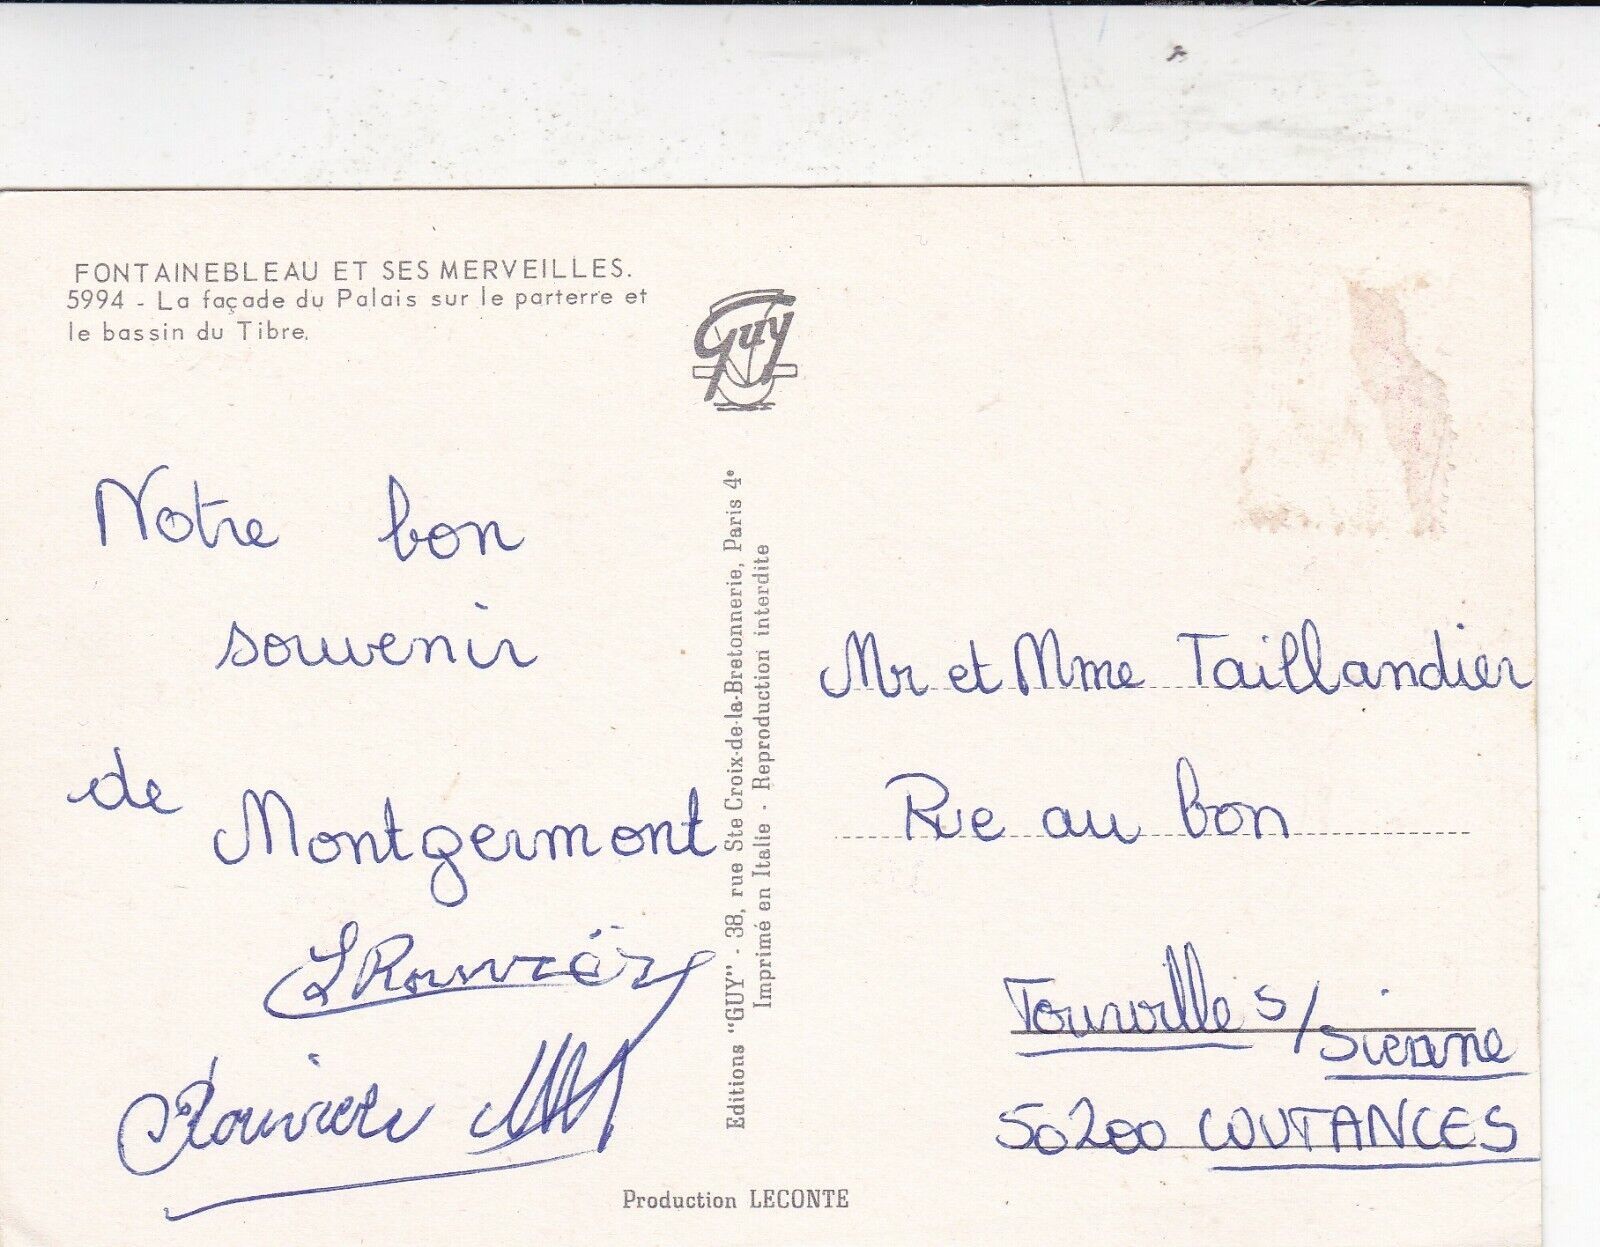 FONTAINEBLEAU ET SES MERVEILLES.
5994 - La façade du Palais sur le parterre et
le bassin du Tibre.
Guy
Notre bon
souvenir
de
Montgermont
Rouvier
Editions "GUY" - 38, rue Ste Croix-de-la-Bretonnerie, Paris 4e
Imprimé en Italie - Reproduction interdite
Mr et Mme Taillandier
Rue au bon
Tourville s/
Sienne
50200 COUTANCES
Production LECONTE